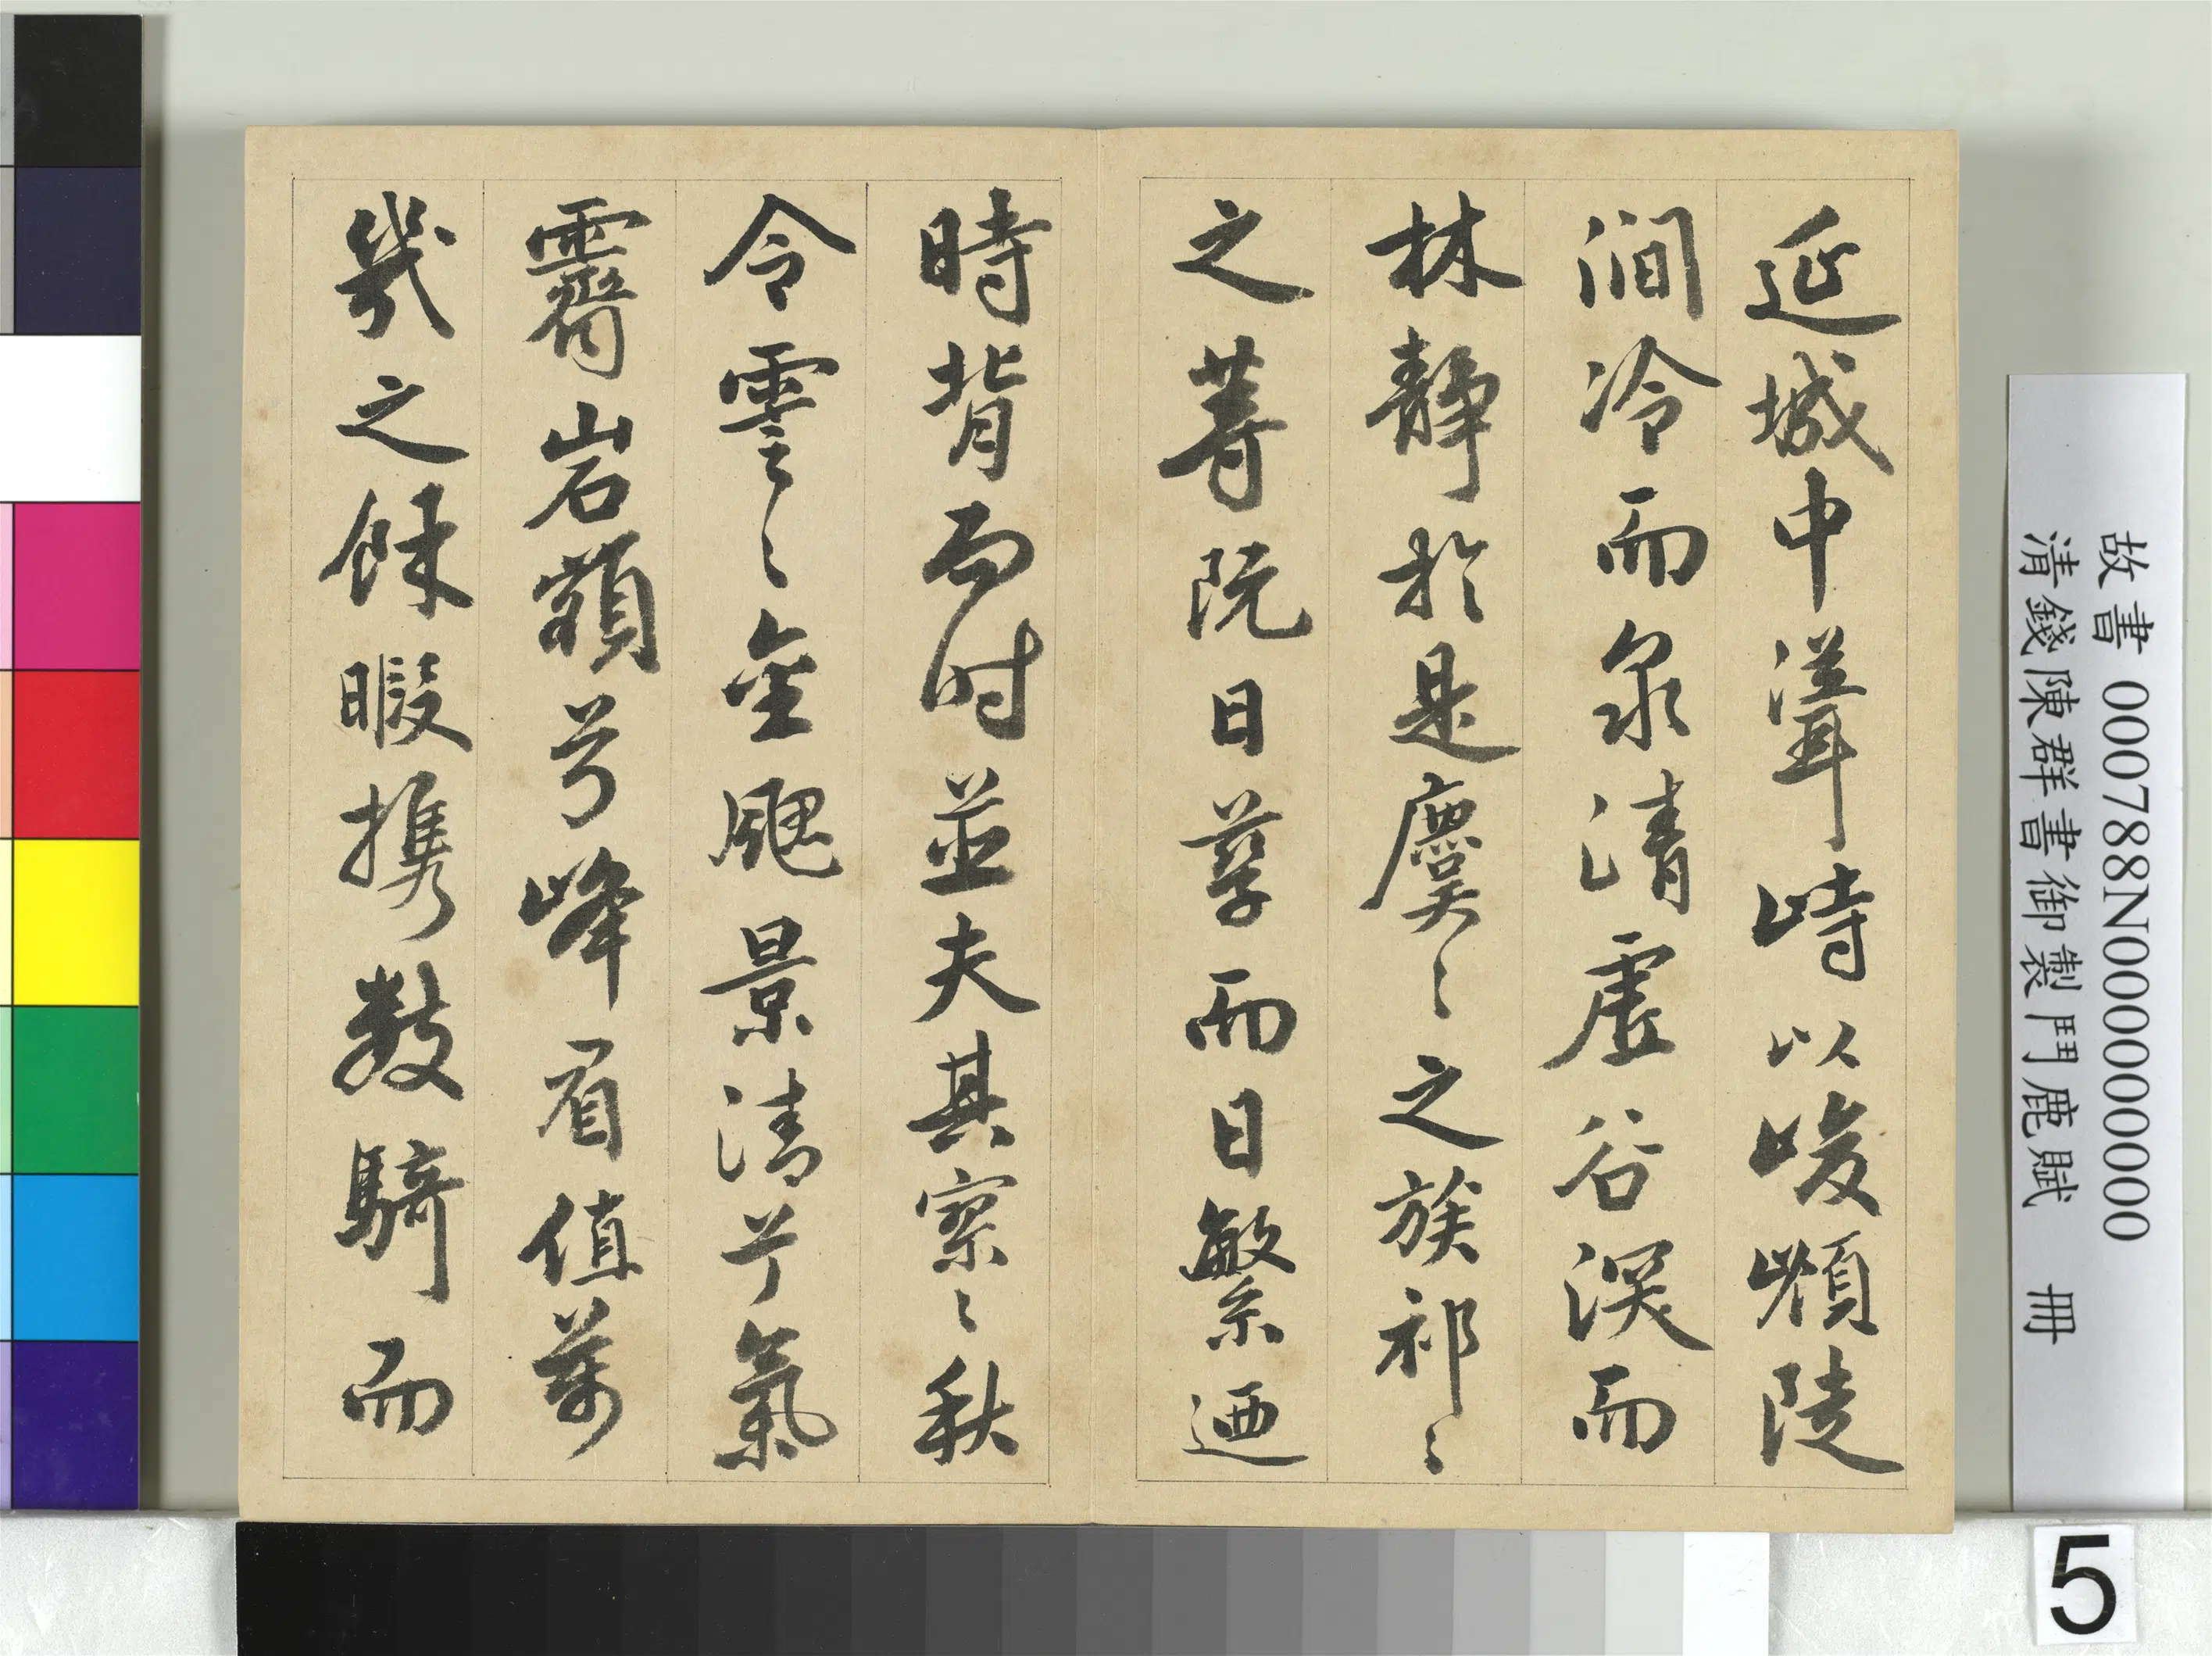 延堿中聳峙以峻㟧陡
澗冷而泉清虛谷深而
林靜於是麌〻之族祁〻
之萻既日孳而日繁迺
時背而时並夫其寥〻秋
令雲〻金颸景清兮氣
霽岩巔兮峰眉值萬
幾之餘暇携數騎而
故書 000788N000000000
清錢陳群書御製鬥鹿賦 冊
5